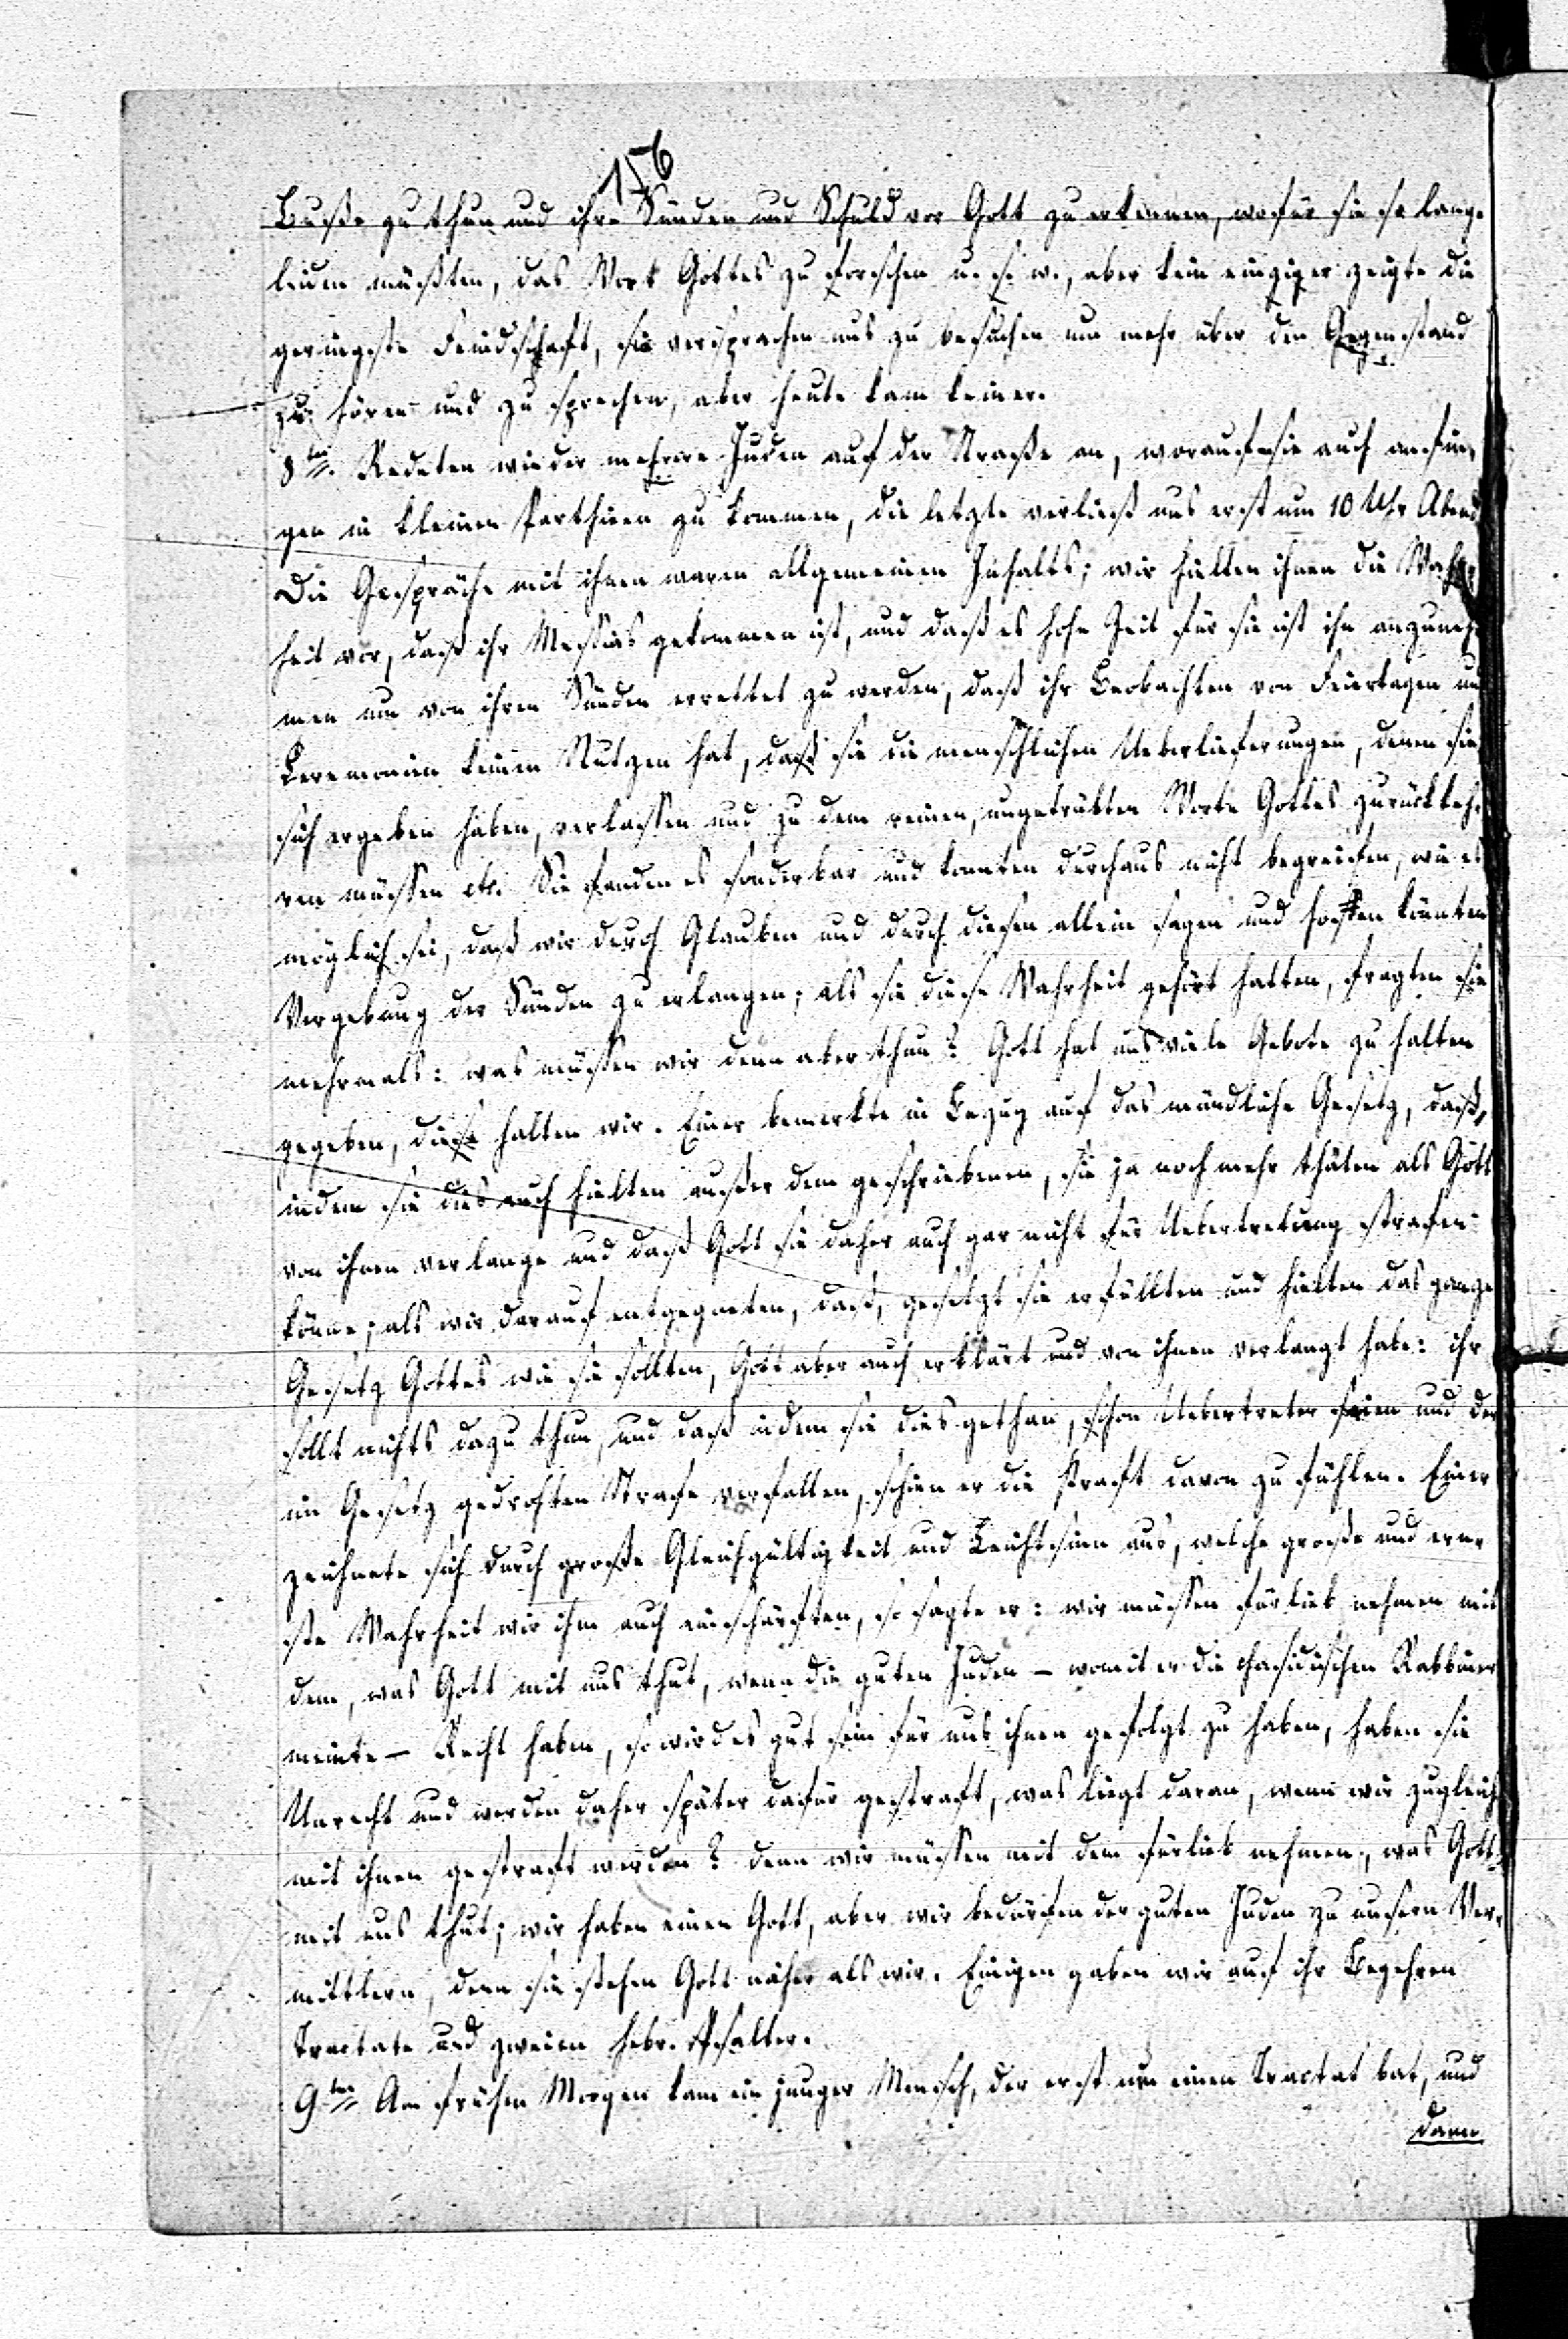 156
Buße zu thun und ihre Sünden und Schuld vor Gott zu erkennen, wofür sie so lange
leiden müßten, das Wort Gottes zu forschen u. s. w., aber kein einziger zeigte die
geringste Feindschaft, sie versprachen uns zu besuchen um mehr über den Gegenstand
zu hören und zu sprechen, aber heute kam keiner.
8ten. Redeten wieder mehrere Juden auf der Straße an, worauf sie auch anfin-
gen in kleinen Parthieen zu kommen, die letzte verließ uns erst um 10 Uhr Abend
Die Gespräche mit ihnen waren allgemeinen Inhalts; wir hielten ihnen die Wahr-
heit vor, daß ihr Messias gekommen ist, und daß es hohe Zeit für sie ist ihn anzuneh-
men um von ihren Sünden errettet zu werden, daß ihr Beobachten von Feiertagen und
Ceremonien keinen Nutzen hat, daß sie die menschlichen Ueberlieferungen, denen sie
sich ergeben haben, verlassen und zu dem reinen, ungetrübten Worte Gottes zurückkeh-
ren müssen etc. Sie fanden es sonderbar und konnten durchaus nicht begreifen, wie es
möglich sei, daß wir durch Glauben und durch diesen allein sagen und hoffen könnten
Vergebung der Sünden zu erlangen; als sie diese Wahrheit gehört hatten, fragten sie
mehrmals: was müssen wir denn aber thun? Gott hat uns viele Gebote zu halten
gegeben, diese halten wir. Einer bemerkte in Bezug auf das mündliche Gesetz, daß,
indem sie dies auch hielten außer dem geschriebenen, sie ja noch mehr thäten als Gott
von ihnen verlange und daß Gott sie daher auch gar nicht für Uebertretung strafen
könne; als wir darauf entgegneten, daß, gesetzt sie erfüllten und hielten das ganze
Gesetz Gottes wie sie sollten, Gott aber auch erklärt und von ihnen verlangt habe: ihr
sollt nichts dazu thun, und daß indem sie dies gethan, schon Uebertreter seien und der
im Gesetz gedrohten Strafe verfallen, schien er die Kraft davon zu fühlen. Einer
zeichnete sich durch große Gleichgültigkeit und Leichtsinn aus, welche große und ern-
ste Wahrheit wir ihm auch einschärften, so sagte er: wir müssen fürlieb nehmen mit
dem, was Gott mit uns thut, wenn die guten Juden – womit er die chasidischen Rabbiner
meinte – Recht haben, so wird es gut sein für uns ihnen gefolgt zu haben, haben sie
Unrecht und werden daher später dafür gestraft, was liegt daran, wenn wir zugleich
mit ihnen gestraft werden? denn wir müssen mit dem fürlieb nehmen, was Gott
mit uns thut; wir haben einen Gott, aber wir bedürfen der guten Juden zu unsern Ver-
mittlern, denn sie stehen Gott näher als wir. Einigen gaben wir auf ihr Begehren
Tractate und zweien hebr. Psalter.
9ten Am frühen Morgen kam ein junger Mensch, der erst um einen Tractat bat, und
dann